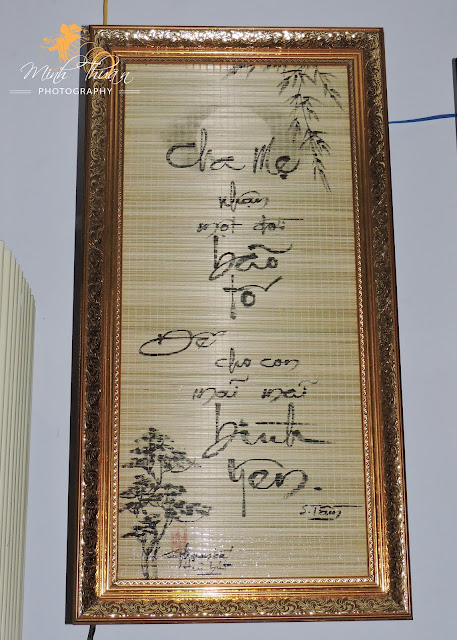 Minh Thuận
PHOTOGRAPHY
Cha Mẹ
nhận
một đời
bão
tố
Để
cho con
mãi mãi
bình
yên.